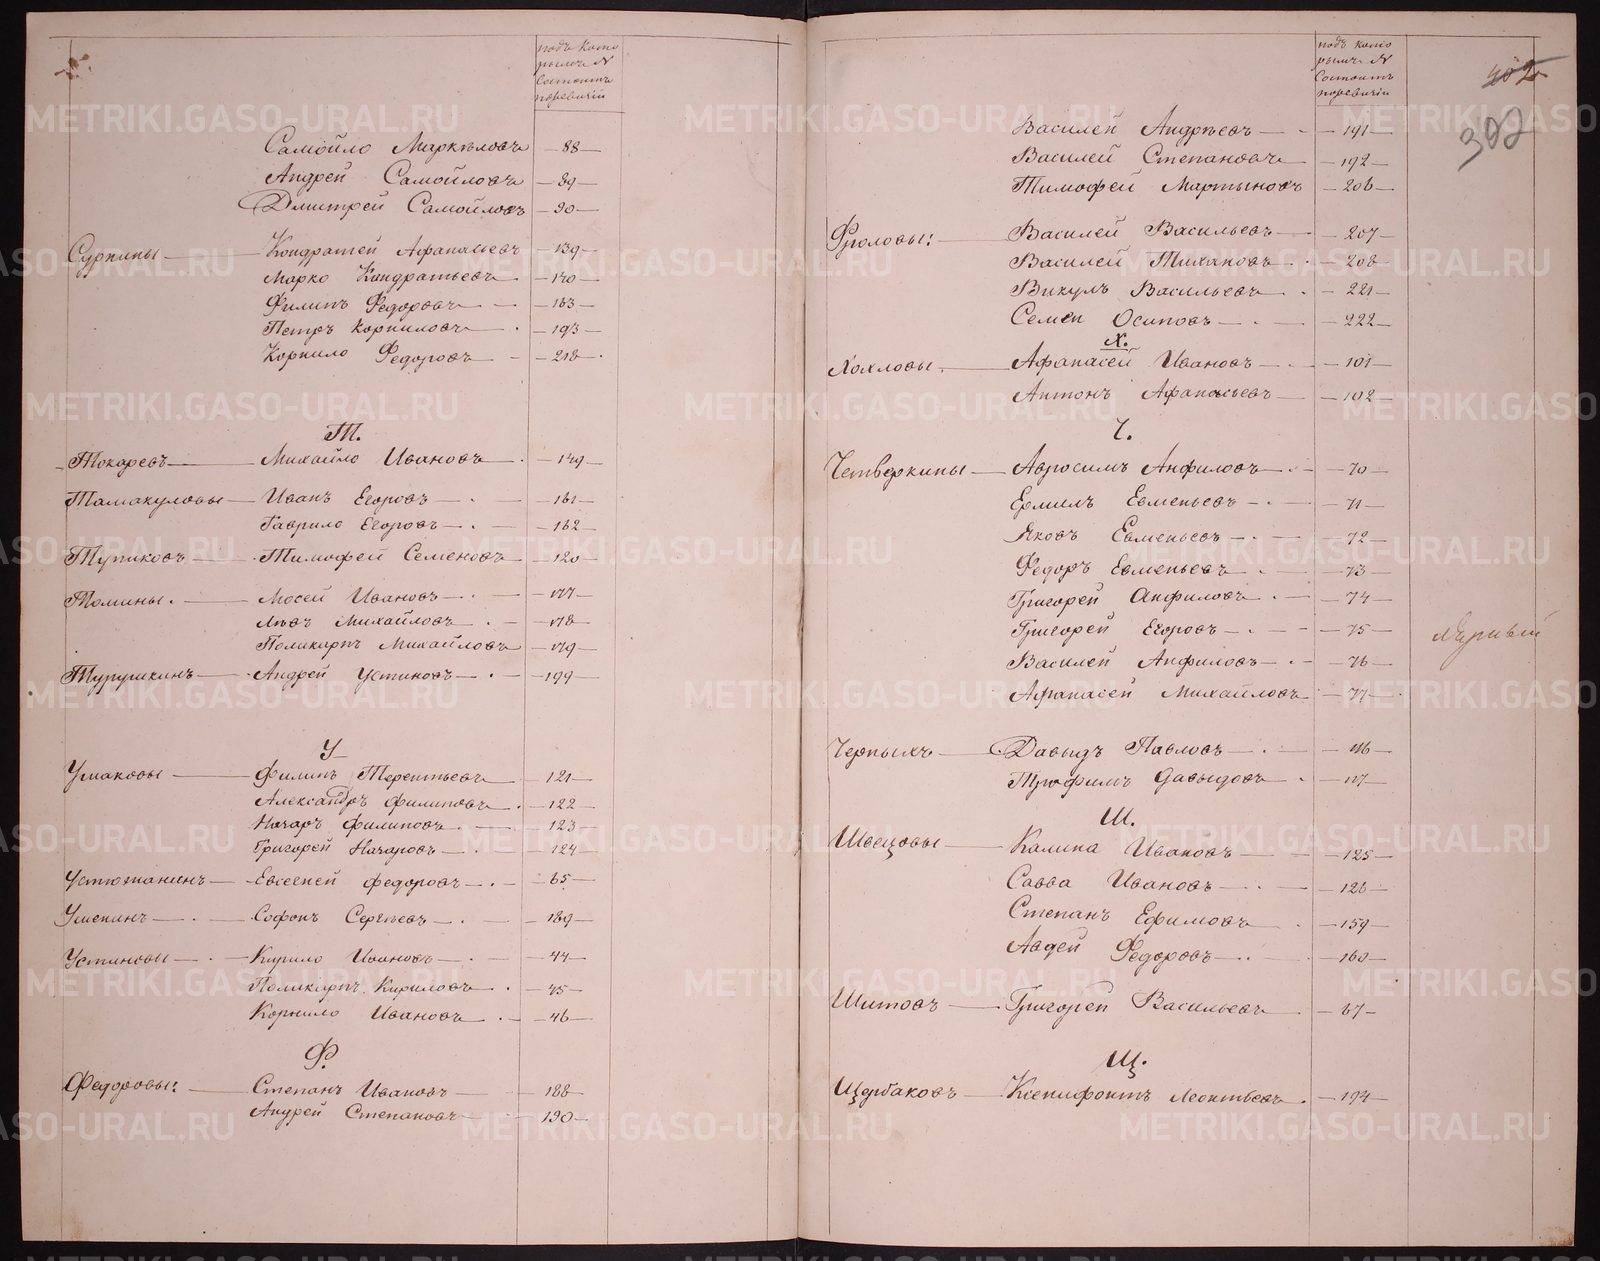 подъ кото
рымъ №
Состоитъ
поревизіи
Самойло Маркѣловъ — 88 —
Андрей Самойловъ — 89 —
Дмитрей Самойловъ — 90 —
Сурнины — Кондратей Афанасьевъ — 139 —
Марко Кондратьевъ — 140 —
Филипъ Федоровъ — 163 —
Петръ Корниловъ — 193 —
Корнило Федоровъ — 218 —
Т.
Токаревъ — Михайло Ивановъ — 149 —
Тамакуловы — Иванъ Егоровъ — 161 —
Гаврило Егоровъ — 162 —
Тупиковъ — Тимофей Семеновъ — 120 —
Томины. — Мосей Ивановъ — 177 —
Львъ Михайловъ — 178
Поликарпъ Михайловъ — 179 —
Турушкинъ — Андрей Устиновъ — 199 —
У
Ушаковы — Филипъ Терентьевъ — 121 —
Александръ Филиповъ — 122 —
Назаръ Филиповъ — 123
Григорей Назаровъ — 124
Устюжанинъ — Евсегней Федоровъ — 65 —
Умекинъ — Софонъ Сергѣевъ — 189 —
Устиновы — Кирило Ивановъ — 44 —
Поликарпъ Кириловъ — 45
Корнило Ивановъ — 46
Ф.
Федоровы: — Степанъ Ивановъ — 188
Андрей Степановъ — 190 —
подъ кото
рымъ №
Состоитъ
поревизіи
402
302
Василей Андреевъ — 191 —
Василей Степановъ — 192 —
Тимофей Мартыновъ — 206 —
Фроловы: — Василей Васильевъ — 207
Василей Тихановъ — 208
Викулъ Васильевъ — 221 —
Семен Осиповъ — 222 —
Х.
Хохловы — Афанасей Ивановъ — 101 —
Антонъ Афанасьевъ — 102 —
Ч.
Четверкины — Авросимъ Анфиловъ — 70 —
Ермилъ Евменьевъ — 71 —
Яковъ Евменьевъ — 72 —
Федоръ Евменьевъ — 73
Григорей Анфиловъ — 74 —
Григорей Егоровъ — 75 —
Василей Анфиловъ — 76 —
Афанасей Михайловъ — 77 —
Черныхъ — Давыдъ Павловъ — 116
Трофимъ Давыдовъ — 117
Ш.
Швецовы — Калина Ивановъ — 125 —
Савва Ивановъ — 126
Степанъ Ефимовъ — 159 —
Авдей Федоровъ — 160 —
Шитовъ — Григорей Васильевъ — 67 —
Щ.
Щербаковъ — Ксенифонтъ Леонтьевъ — 194 —